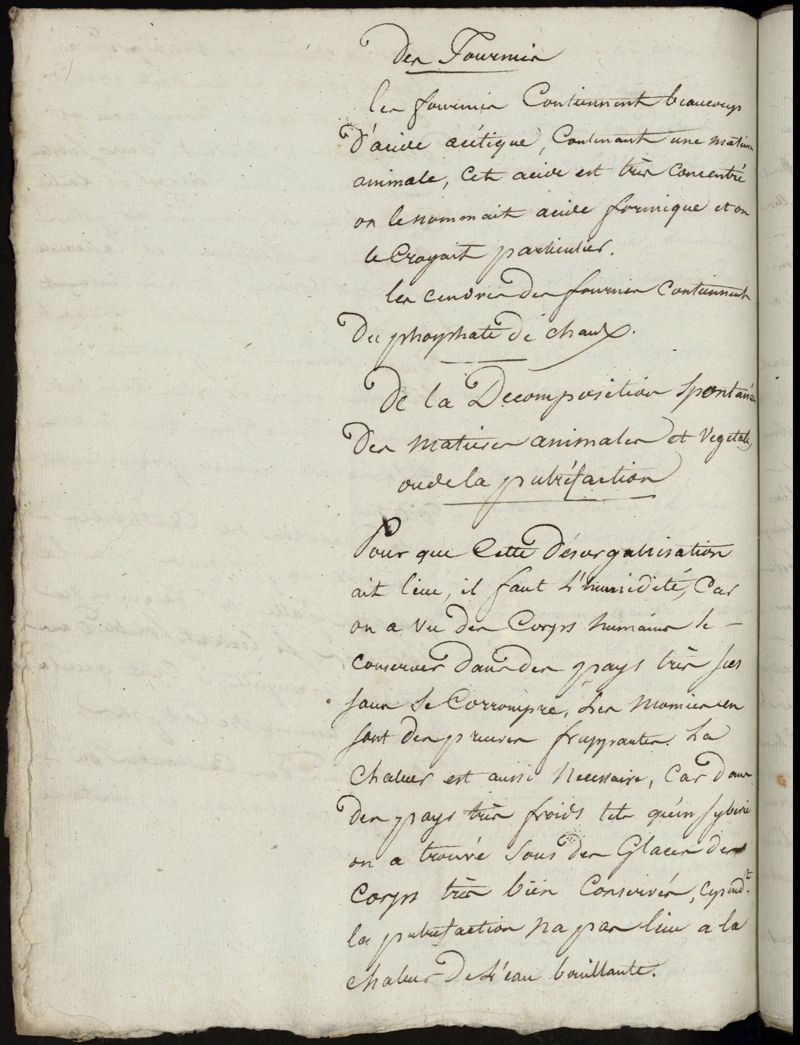 des Fourmis
les fourmis Contiennent beaucoup
d'acide acétique, Contenant une matiere
animale, cet acide est très concentré
on le nommait acide formique et on
le Croyait particulier.
les cendres des fourmis contiennent
du phosphate de chaux.
De la Decomposition Spontanée
des matieres animales et Vegetales
ou de la putréfaction
Pour que Cette désorganisation
ait lieu, il faut d'humidité, Car
on a vu des Corps humains se
conserver dans des pays très secs
sans se Corrompre, des momies en
sont des preuves frappantes. La
chaleur est aussi necessaire, Car dans
des pays très froids tels qu'en syberie
on a trouvé sous des Glaces des
Corps très bien Conservés, cepend.t
la putrefaction na pas lieu a la
chaleur de l'eau bouillante.